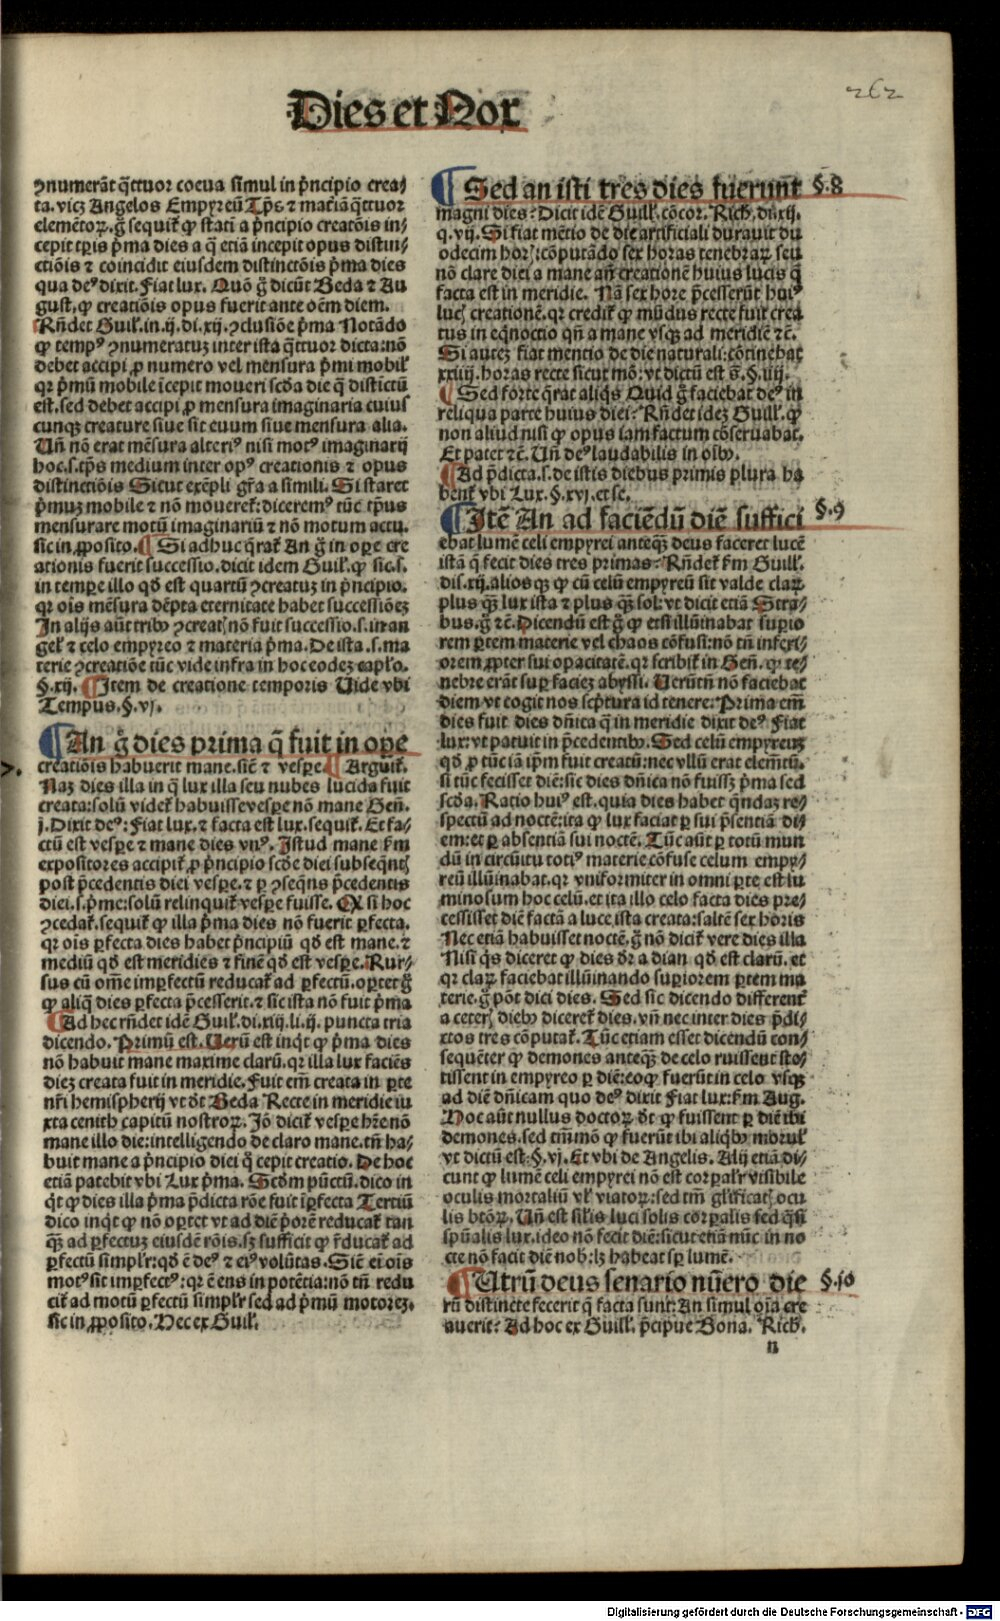 262
Dies et Nox
ꝯnumerāt q̄ttuor coeua simul in pͥncipio crea/
ta. vicꝫ Angelos Empyreū Tp̄s ⁊ mat̄iā q̄ttuor
elemētoꝝ. g̈ sequit᷑ ꝙ stati᷑ a pͥncipio creatōis in/
cepit tp̄is pͥma dies a q̄ etiā incepit opus distin/
ctiōis ⁊ coincidit eiusdem distinctōis pͥma dies
qua deꝰ dixit. Fiat lux. Quō g̈ dicūt Beda ⁊ Au
gust. ꝙ creatiōis opus fuerit ante oēm diem.
Rn̄det Guil̕. in .ij. di. xij. ꝯclusiōe pͥma Notādo
ꝙ tempꝰ ꝯnumeratuꝫ inter ista q̄ttuor dicta: nō
debet accipi ꝓ numero vel mensura pͥmi mobil̕
qꝛ pͥmū mobile īcepit moueri scd̄a die q̄ distīctū
est. sed debet accipi ꝓ mensura imaginaria cuius
cunqꝫ creature siue sit euum siue mensura alia.
Un̄ nō erat mēsura alteriꝰ nisi motꝰ imaginarij
hoc. s. tp̄s medium inter opꝰ creationis ⁊ opus
distinctiōis Sicut exēpli gr̄a a simili. Si staret
pͥmuꝫ mobile ⁊ nō moueret᷑: diceremꝰ tūc tp̄us
mensurare motū imaginariū ⁊ nō motum actu.
sic in ꝓposito. ¶ Si adhuc q̄rat᷑ An g̈ in oꝑe cre
ationis fuerit successio. dicit idem Guil̕. ꝙ sic. s.
in tempe illo qd̄ est quartū ꝯcreatuꝫ in pͥncipio.
qꝛ oīs mēsura dēpta eternitate habet successiōeꝫ
In alijs aūt tribꝰ ꝯcreatꝭ nō fuit successio. s. in an
gel̕ ⁊ celo empyreo ⁊ materia pͥma. De ista. s. ma
terie ꝯcreatiōe tūc vide infra in hoc eodeꝫ cap̄lo.
§. xij. ¶ Item de creatione temporis Vide vbi
Tempus. §. vj.
¶ An g̈ dies prima q̄ fuit in oꝑe
creatiōis habuerit mane. sil̕ē ⁊ vespe. ¶ Arguit᷑.
Naꝫ dies illa in q̄ lux illa seu nubes lucida fuit
creata: solū videt᷑ habuisse vespe nō mane Gen̄.
j. Dixit deꝰ: Fiat lux. ⁊ facta est lux. sequit᷑. Et fa/
ctū est vespe ⁊ mane dies vnꝰ. Istud mane ẜm
expositores accipit᷑ ꝓ pͥncipio scd̄e diei subseqn̄tꝭ
post pͥcedentis diei vespe. ⁊ ꝑ ꝯseqn̄s pͥcedentis
diei. s. pͥme: solū relinquit᷑ vespe fuisse. Qꝙ si hoc
ꝯcedat᷑. sequit᷑ ꝙ illa pͥma dies nō fuerit ꝑfecta.
qꝛ oīs ꝑfecta dies habet pͥncipiū qd̄ est mane. ⁊
mediū qd̄ est meridies ⁊ finē qd̄ est vespe. Rur/
sus cū om̄e imꝑfectū reducat᷑ ad ꝑfectū. oꝑtet g̈
ꝙ aliq̄ dies ꝑfecta pͥcesserit. ⁊ sic ista nō fuit pͥma
¶ Ad hec rn̄det idē Guil̕. di. xiij. li. ij. puncta tria
dicendo. Primū est. Uerū est inqͥt ꝙ pͥma dies
nō habuit mane maxime clarū. qꝛ illa lux faciēs
dieꝫ creata fuit in meridie. Fuit em̄ creata in ꝑte
nr̄i hemispherij vt dt̄ Beda Recte in meridie iu
xta cenith capitū nostroꝝ. Iō dicit᷑ vespe hr̄e nō
mane illo die: intelligendo de claro mane. tn̄ ha/
buit mane a pͥncipio diei q̄ cepit creatio. De hoc
etiā patebit vbi Lux pͥma. Scd̄m pūctū. dico in
qͥt ꝙ dies illa pͥma pͥdicta rōe fuit īꝑfecta Tertiū
dico inqͥt ꝙ nō oꝑtet vt ad diē pͥorē reducat᷑ tan
q̄ꝫ ad ꝑfectuꝫ eiusdē rōis. sꝫ sufficit ꝙ r̄ducat᷑ ad
ꝑfectū simplr̄: qd̄ ē deꝰ ⁊ eiꝰ volūtas. Sil̕ē ei oīs
motꝰ sit imꝑfectꝰ: qꝛ ē ens in potētia: nō tn̄ redu
cit᷑ ad motū ꝑfectū simplr̄ sed ad pͥmū motoreꝫ.
sic in ꝓposito. Hec ex Guil̕.
¶ Sed an isti tres dies fuerunt §. 8
magni dies? Dicit idē Guill̕. cōcor. Rich. di. xij.
q. vij. Si fiat mētio de die artificiali durauit du
odecim horꝭ: cōputādo sex horas tenebraꝝ seu
nō clare diei a mane an̄ creationē huius lucis q̄
facta est in meridie. Nā sex hore pͥcesserūt huiꝰ
lucꝭ creationē. qꝛ credit᷑ ꝙ mūdus recte fuit crea
tus in eqͥnoctio qn̄ a mane vsqꝫ ad meridiē ⁊c̄.
Si auteꝫ fiat mentio de die naturali: cōtinebat
xxiiij. horas recte sicut mō: vt dictū est s̄. §. iiij.
¶ Sed forte q̄rat aliqͥs Quid g̈ faciebat deꝰ in
reliqua parte huius diei? Rn̄det ideꝫ Guill̕. ꝙ
non aliud nisi ꝙ opus iam factum cōseruabat.
Et patet ⁊c̄. Un̄ deꝰ laudabilis in oībꝰ.
¶ Ad pͥdicta. s. de istis diebus primis plura ha
bent᷑ vbi Lux. §. xvj. et se.
¶ Itē An ad faciēdū diē suffici §. 9
ebat lumē celi empyrei anteqͣꝫ deus faceret lucē
istā q̄ fecit dies tres primas? Rn̄det᷑ ẜm Guill̕.
dis. xij. aliosqꝫ ꝙ cū celū empyreū sit valde claꝝ
plus qͣꝫ lux ista ⁊ plus qͣꝫ sol: vt dicit etiā Stra/
bus. g̈ ⁊c̄. Dicendū est g̈ ꝙ etsi illūinabat suꝑio
rem ꝑtem materie vel chaos cōfusi: nō tn̄ inferi/
orem ꝓpter sui opacitatē. qꝛ scribit᷑ in Gen̄. ꝙ te/
nebre erāt suꝑ facieꝫ abyssi. Verūtn̄ nō faciebat
diem vt cogit nos scpͥtura id tenere. Prima em̄
dies fuit dies dn̄ica q̄ in meridie dixit deꝰ Fiat
lux: vt patuit in pͥcedentibꝰ. Sed celū empyreuꝫ
qd̄ ꝑ tūc iā ip̄m fuit creatū: nec vllū erat elemētū.
si tūc fecisset diē: sic dies dn̄ica nō fuissꝫ pͥma sed
scd̄a. Ratio huiꝰ est. quia dies habet qͣndaꝫ re/
spectū ad noctē: ita ꝙ lux faciat ꝑ sui pͥsentiā di/
em: et ꝑ absentiā sui noctē. Tūc aūt ꝑ totū mun
dū in circūitu totiꝰ materie cōfuse celum empy/
reū illūinabat. qꝛ vniformiter in omni ꝑte est lu
minosum hoc celū. et ita illo celo facta dies pre/
cessisset diē factā a luce ista creata: saltē sex horis
Nec etiā habuisset noctē. g̈ nō dicit᷑ vere dies illa
Nisi qͥs diceret ꝙ dies dr̄ a dian qd̄ est clarū. et
qꝛ claꝝ faciebat illūinando suꝑiorem ꝑtem ma
terie. g̈ pōt dici dies. Sed sic dicendo different᷑
a ceterꝭ diebꝰ diceret᷑ dies. vn̄ nec inter dies pͥdi/
ctos tres cōputat᷑. Tūc etiam esset dicendū con/
sequēter ꝙ demones anteqͣꝫ de celo ruissent sto/
tissent in empyreo ꝑ diē: eo ꝙ fuerūt in celo vsqꝫ
ad diē dn̄icam quo deꝰ dixit Fiat lux: ẜm Aug.
Hoc aūt nullus doctoꝝ dt̄ ꝙ fuissent ꝑ diē ibi
demones. sed tm̄mō ꝙ fuerūt ibi aliqͥbꝰ morul̕
vt dictū est. §. vj. Et vbi de Angelis. Alij etiā di/
cunt ꝙ lumē celi empyrei nō est corꝑalr̄ visibile
oculis mortaliū vl̕ viatoꝝ: sed tm̄ gl̕ificatꝭ ocu
lis btōꝝ. Un̄ est sil̕is luci solis corꝑalis sed qͣsi
spūalis lux. ideo nō fecit diē: sicut etiā nūc in no
cte nō facit diē nob: lꝫ habeat sꝑ lumē.
¶ Utrū deus senario nūero die §. 10
rū distincte fecerit q̄ facta sunt: An simul oīa cre
auerit? Ad hoc ex Guill̕. pͥcipue Bona. Rich.
n
Digitalisierung gefördert durch die Deutsche Forschungsgemeinschaft - DFG